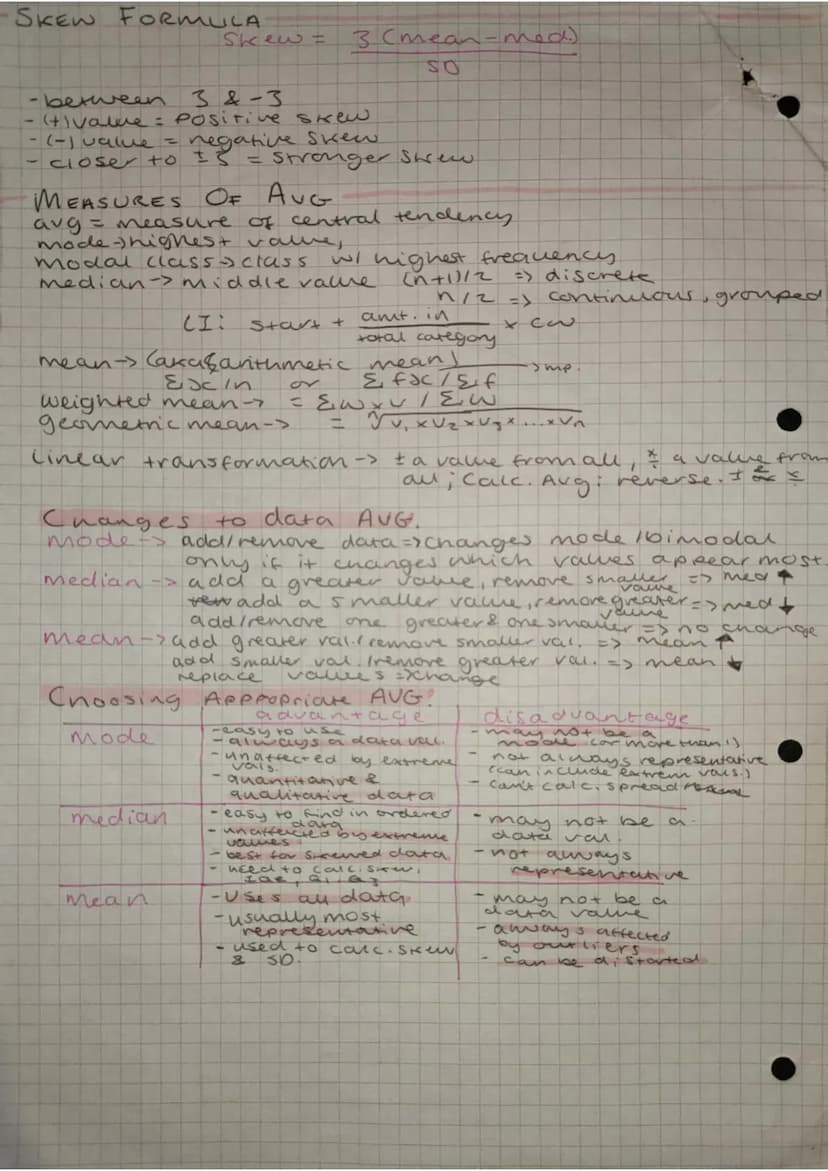 SKEW FORMULA
Skew = 3(mean-med.)
SD
- between 3 & -3
- (+) value = positive skew
- (-) value = negative skew
- closer to ±3 = stronger skew
MEASURES OF AVG
avg = measure of central tendency
mode -> highest value,
modal class -> class w/ highest frequency
median -> middle value (n+1)/2 => discrete
n/2 => continuous, grouped
LI: start + amt. in / total category × cw
mean -> (aka arithmetic mean)
Σx/n or Σfx/Σf -> mp.
weighted mean -> = Σw×v / Σw
geometric mean -> = ⁿ√v₁×v₂×v₃×...×vₙ
linear transformation -> ± a value from all, ×/÷ a value from
all; calc. Avg; reverse. ± & ×/÷
Changes to data AVG.
mode -> add/remove data => changes mode / bimodal
only if it changes which values appear most.
median -> add a greater value, remove smaller value => med ↑
add a smaller value, remove greater value => med ↓
add/remove one greater & one smaller => no change
mean -> add greater val./remove smaller val. => mean ↑
add smaller val./remove greater val. => mean ↓
replace values => change
Choosing Appropriate AVG.
advantage disadvantage
mode
- easy to use
- always a data val.
- unaffected by extreme
vals.
- quantitative &
qualitative data
- may not be a
mode (or more than 1)
- not always representative
(can include extrem vals.)
- can't calc. spread
median
- easy to find in ordered
data
- unaffected by extreme
values
- best for skewed data
- need to calc. skew,
IQR, Q1, Q3
- may not be a
data val.
- not always
representative
mean
- uses all data
- usually most
representative
- used to calc. skew
& SD.
- may not be a
data value
- always affected
by outliers
- can be distorted